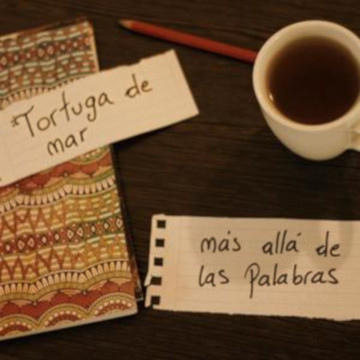 Tortuga de
mar
más allá de
las Palabras